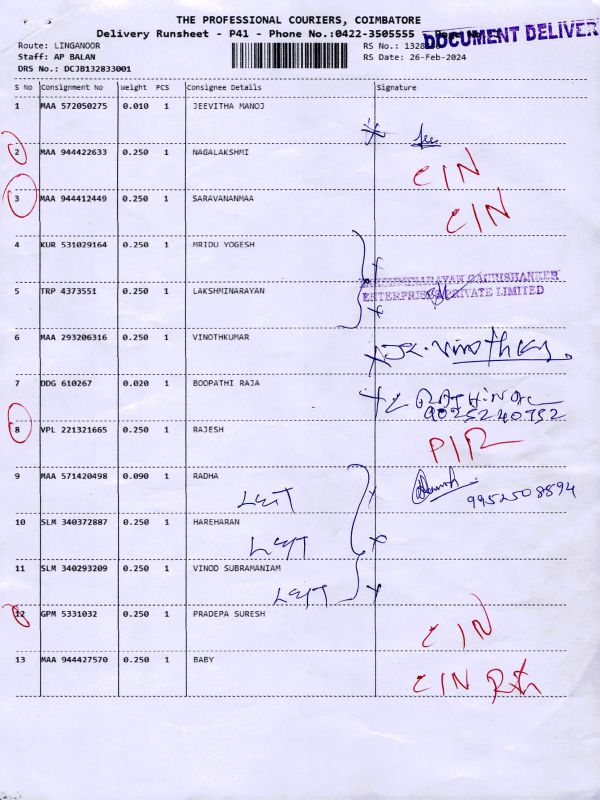 THE PROFESSIONAL COURIERS, COIMBATORE
Delivery Runsheet - P41 - Phone No.:0422-3505555
DOCUMENT DELIVER
Route: LINGANOOR
Staff: AP BALAN RS Date: 26-Feb-2024
DRS No.: DCJB132833001
S No Consignment No Weight PCS Consignee Details Signature
1 MAA 572050275 0.010 1 JEEVITHA MANOJ
2 MAA 944422633 0.250 1 NAGALAKSHMI CIN
3 MAA 944412449 0.250 1 SARAVANANMAA CIN
4 KUR 531029164 0.250 1 MRIDU YOGESH
5 TRP 4373551 0.250 1 LAKSHMINARAYAN
ENTERPRISES PRIVATE LIMITED
6 MAA 293206316 0.250 1 VINOTHKUMAR
7 DDG 610267 0.020 1 BOOPATHI RAJA
9025240752
8 VPL 221321665 0.250 1 RAJESH PIR
9 MAA 571420498 0.090 1 RADHA
LEFT 9952508894
10 SLM 340372887 0.250 1 HAREHARAN
LEFT
11 SLM 340293209 0.250 1 VINOD SUBRAMANIAM
LEFT
12 GPM 5331032 0.250 1 PRADEPA SURESH CIN
13 MAA 944427570 0.250 1 BABY
CIN